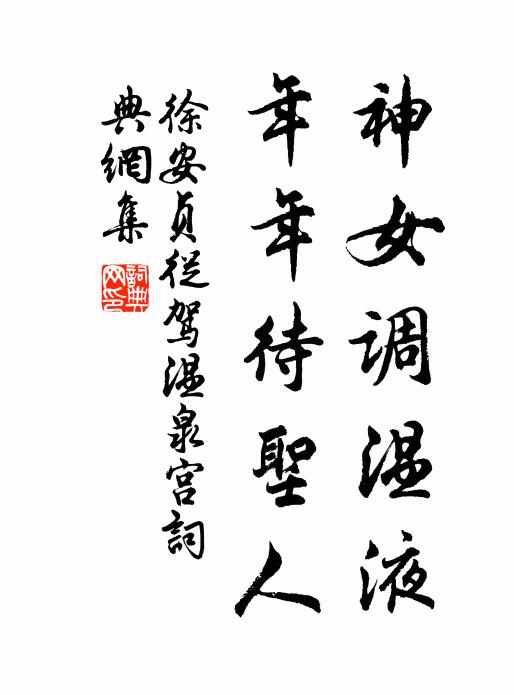 神女调温液
年年待聖人
徐安貞從駕温泉宫詞
典網集
詞典
网印